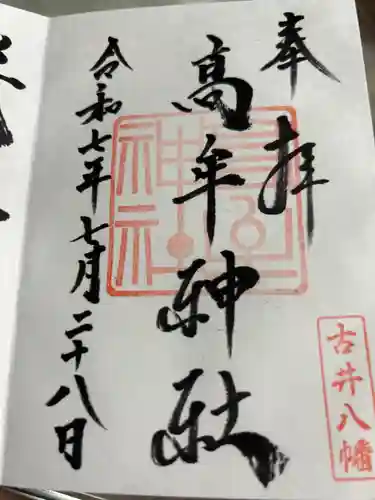 奉拝
高牟神社
令和七年七月二十八日
古井八幡
高牟神社